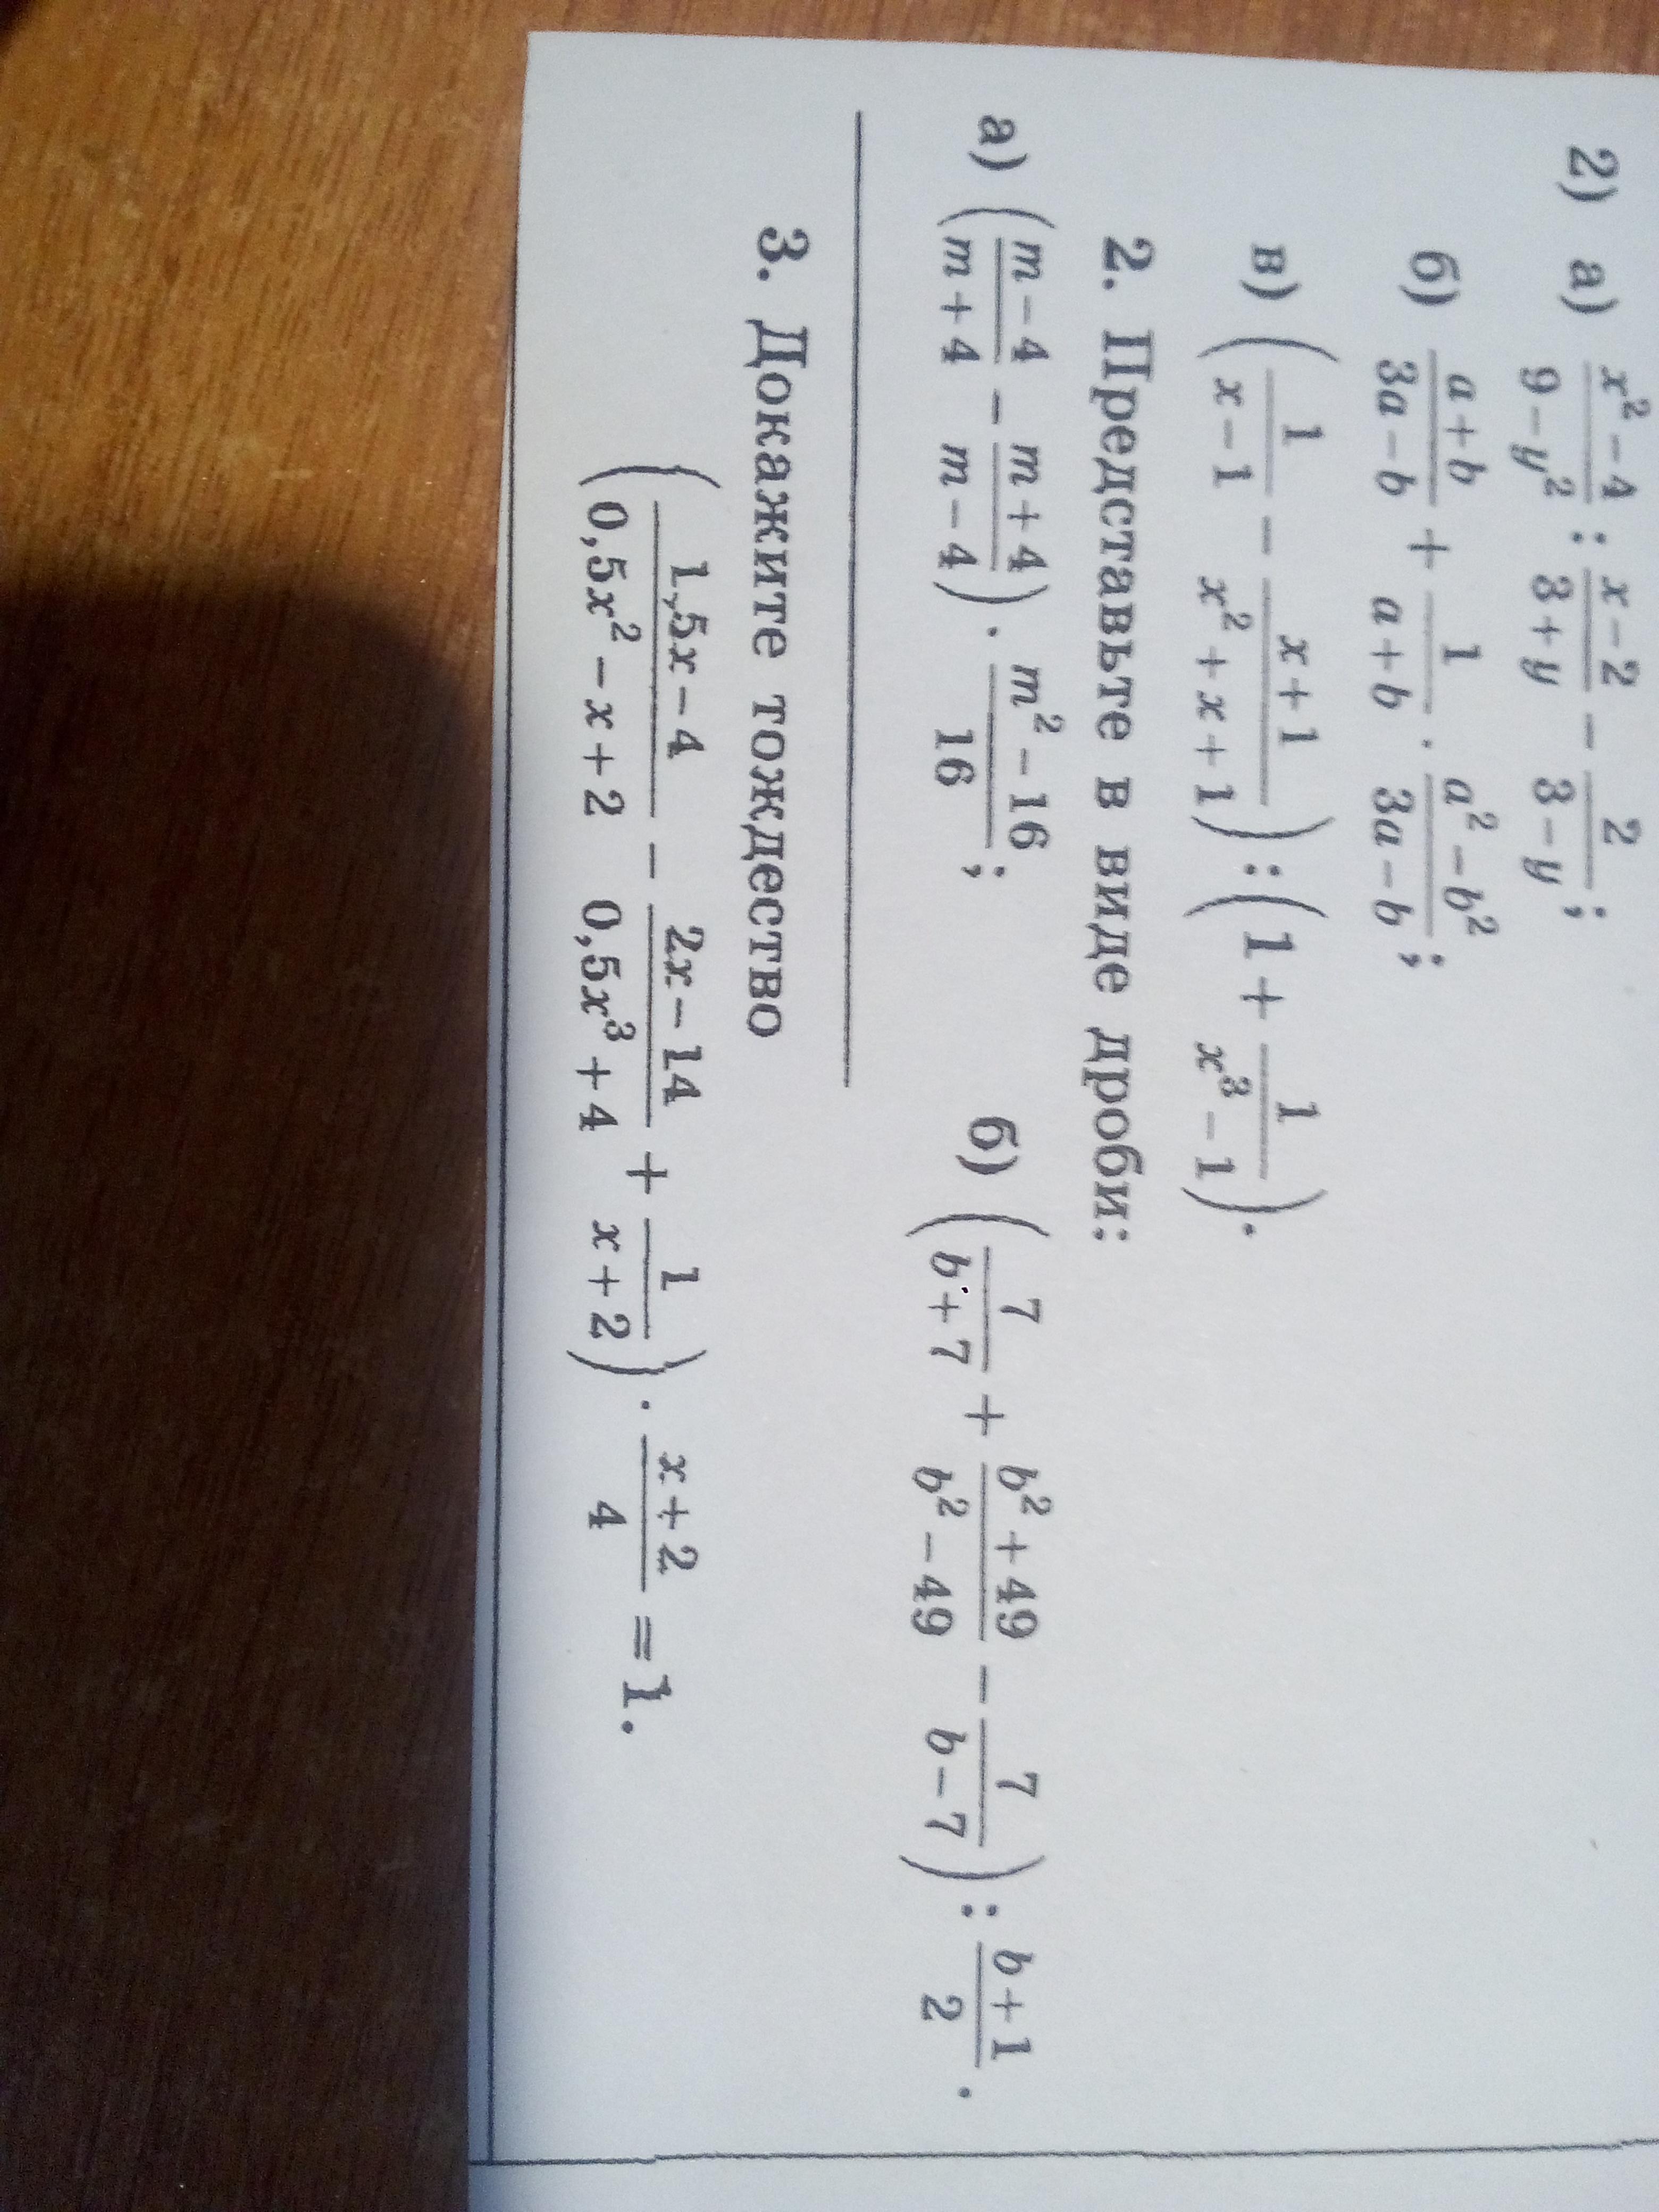 2) а) (x² − 4)/(9 − y²) : (x − 2)/(3 + y) − 2/(3 − y);
б) (a + b)/(3a − b) + 1/(a + b) · (a² − b²)/(3a − b);
в) (1/(x − 1) − (x + 1)/(x² + x + 1)) : (1 + 1/(x³ − 1)).
2. Представьте в виде дроби:
а) ((m − 4)/(m + 4) − (m + 4)/(m − 4)) · (m² − 16)/16; б) (7/(b + 7) + (b² + 49)/(b² − 49) − 7/(b − 7)) : (b + 1)/2.
3. Докажите тождество
((1,5x − 4)/(0,5x² − x + 2) − (2x − 14)/(0,5x³ + 4) + 1/(x + 2)) · (x + 2)/4 = 1.